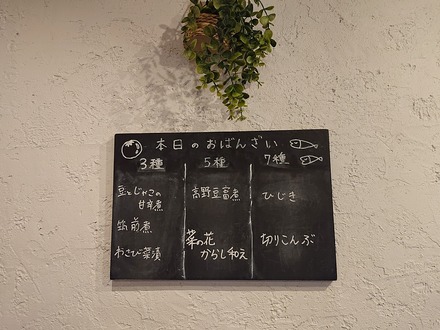 本日のおばんざい
3種
豆とじゃこの
甘辛煮
筑前煮
わさび菜漬
5種
高野豆腐煮
菜の花
からし和え
7種
ひじき
切りこんぶ